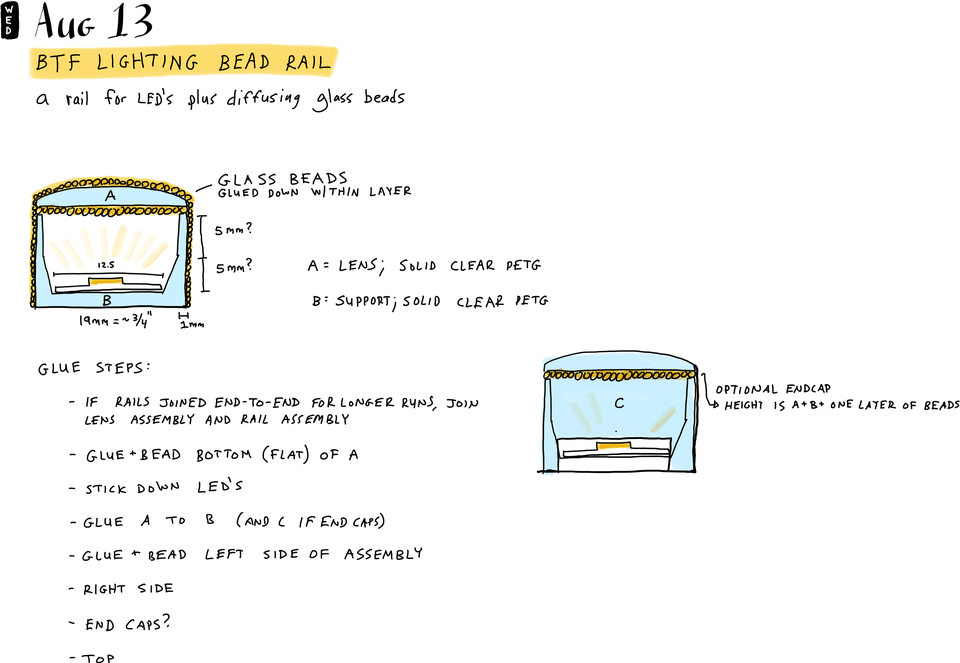 WED
Aug 13
BTF LIGHTING BEAD RAIL
a rail for LED's plus diffusing glass beads
GLASS BEADS
GLUED DOWN W/THIN LAYER
A
5mm?
12.5
5mm?
B
19mm = ~3/4"
1mm
A = LENS; SOLID CLEAR PETG
B: SUPPORT; SOLID CLEAR PETG
GLUE STEPS:
- IF RAILS JOINED END-TO-END FOR LONGER RUNS, JOIN
LENS ASSEMBLY AND RAIL ASSEMBLY
- GLUE + BEAD BOTTOM (FLAT) OF A
- STICK DOWN LED'S
- GLUE A TO B (AND C IF END CAPS)
- GLUE + BEAD LEFT SIDE OF ASSEMBLY
- RIGHT SIDE
- END CAPS?
- TOP
C
OPTIONAL ENDCAP
HEIGHT IS A+B+ ONE LAYER OF BEADS